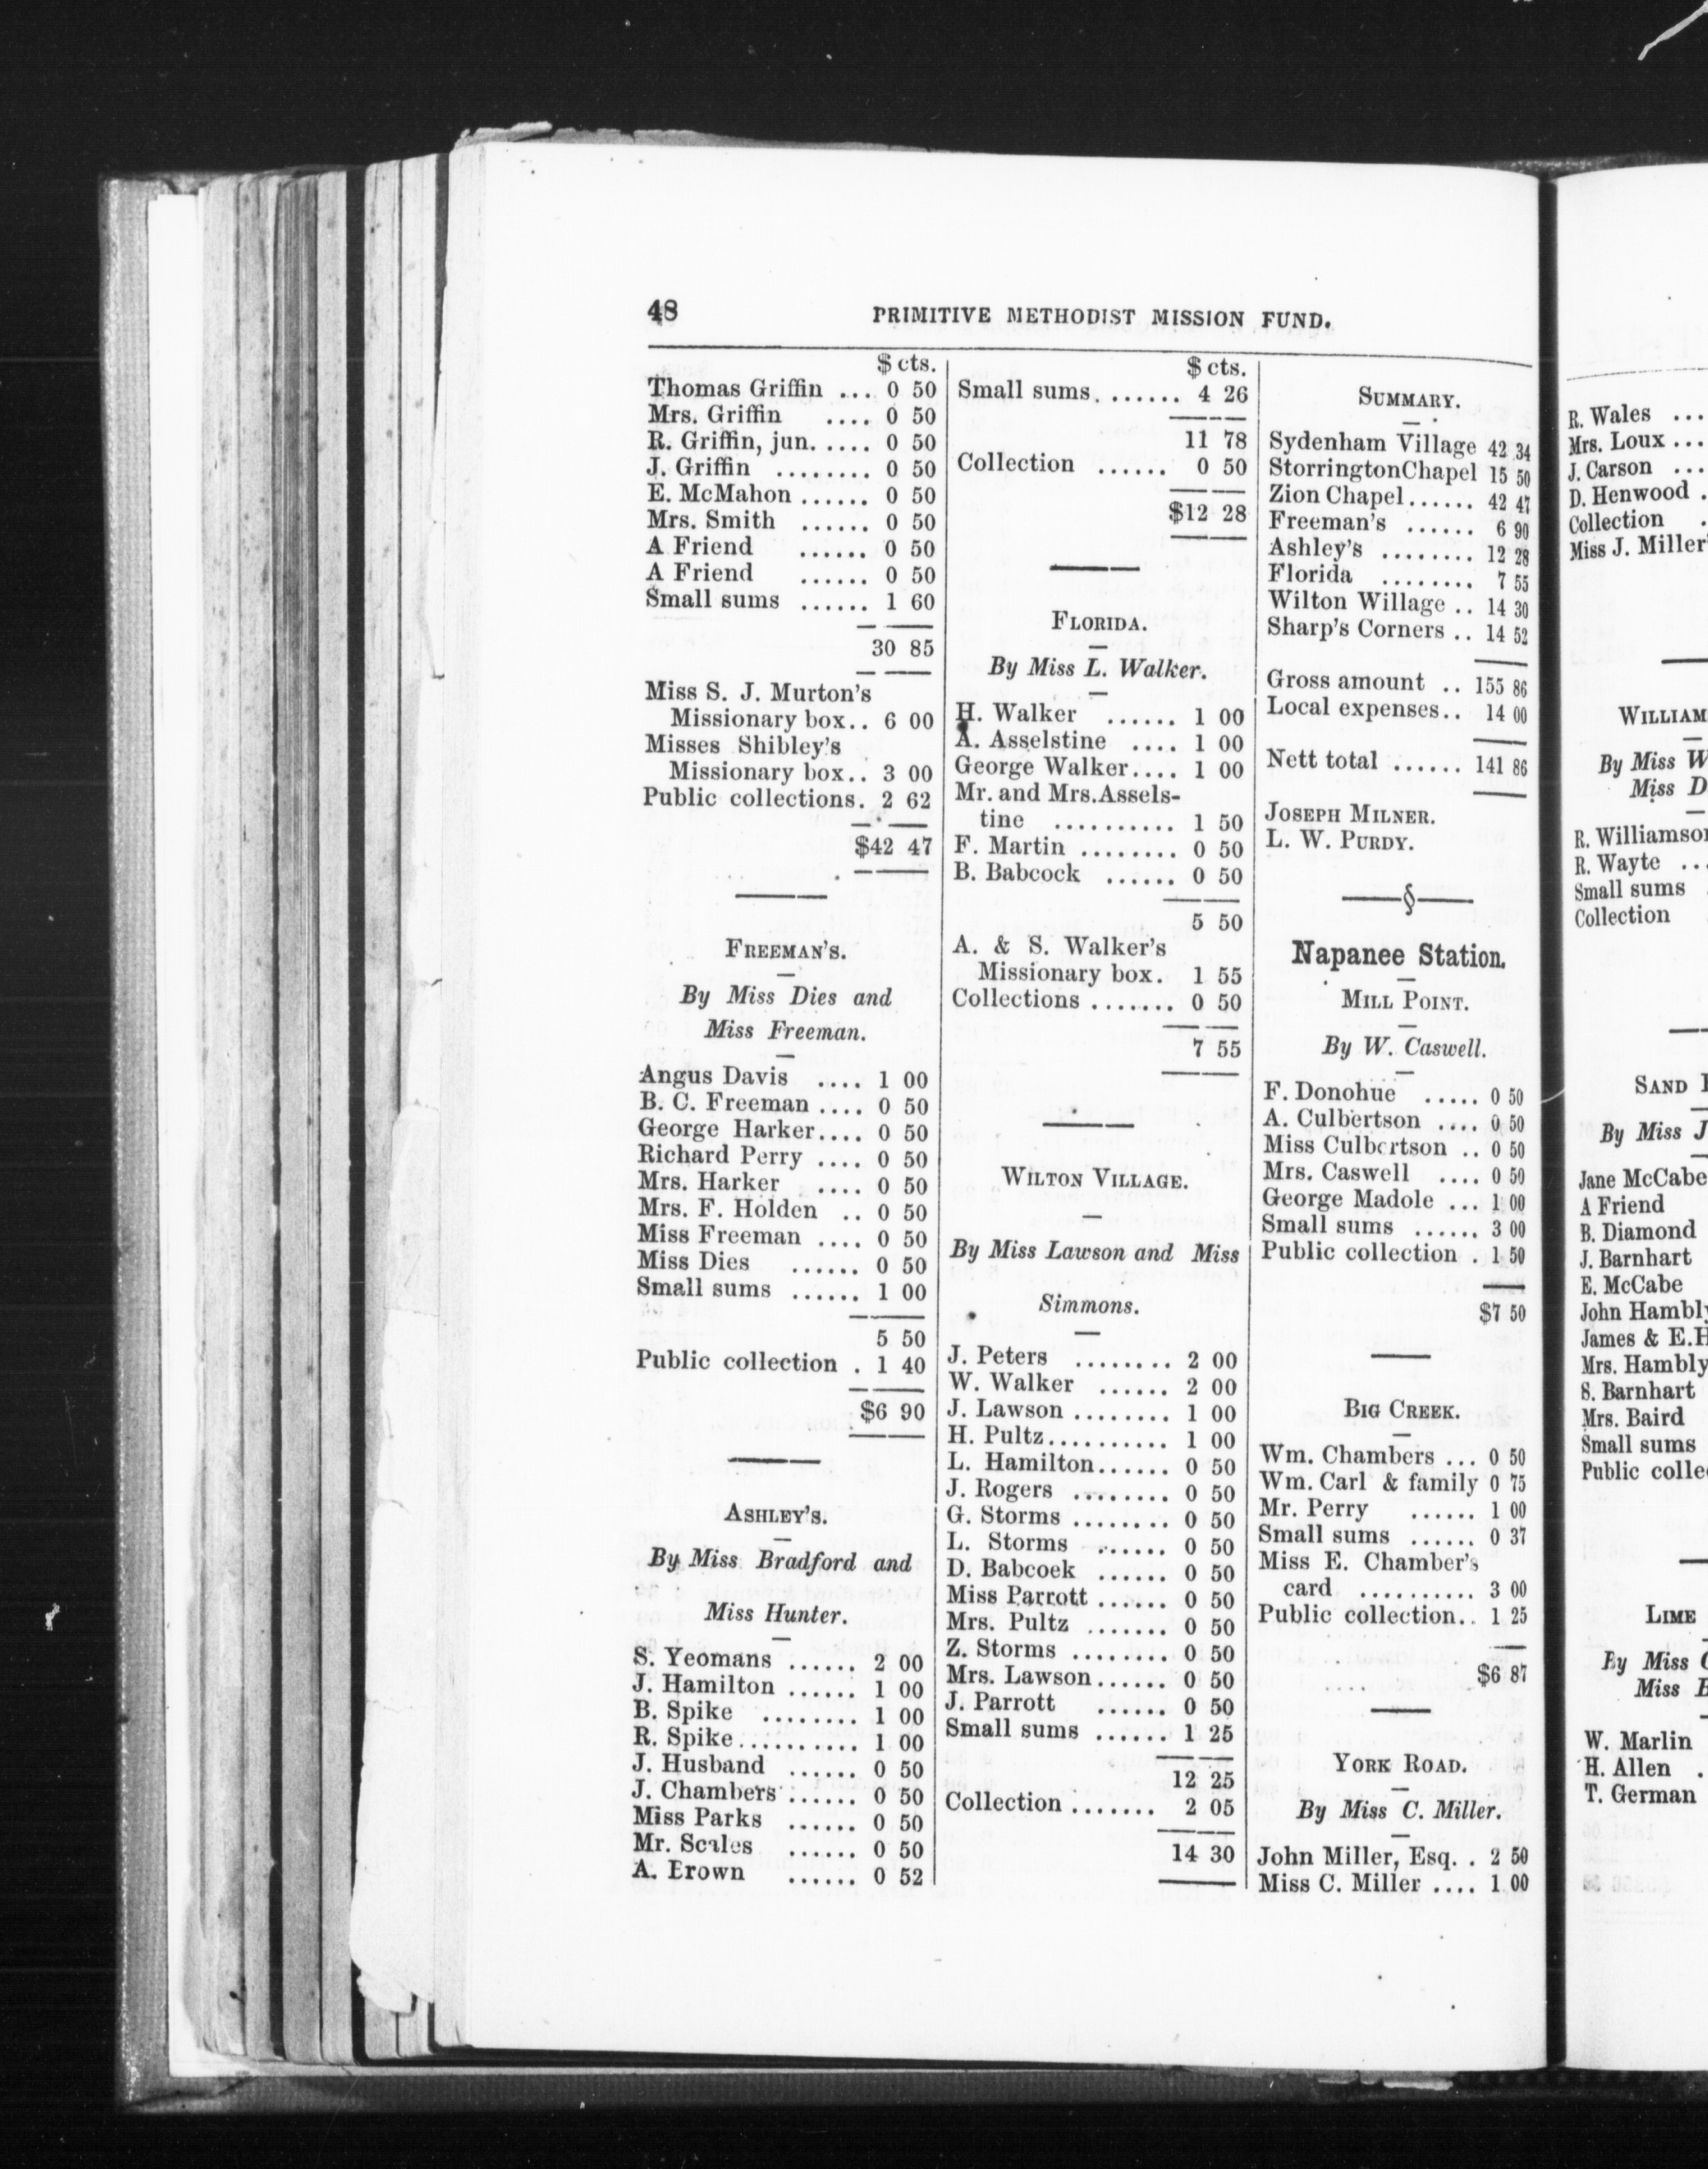 48 PRIMITIVE METHODIST MISSION FUND.
$ cts.
Thomas Griffin ... 0 50
Mrs. Griffin .... 0 50
R. Griffin, jun. .... 0 50
J. Griffin ........ 0 50
E. McMahon ...... 0 50
Mrs. Smith ...... 0 50
A Friend ...... 0 50
A Friend ...... 0 50
Small sums ...... 1 60
30 85
Miss S. J. Murton's
Missionary box.. 6 00
Misses Shibley's
Missionary box.. 3 00
Public collections. 2 62
$42 47
FREEMAN'S.
By Miss Dies and
Miss Freeman.
Angus Davis .... 1 00
B. C. Freeman .... 0 50
George Harker.... 0 50
Richard Perry .... 0 50
Mrs. Harker .... 0 50
Mrs. F. Holden .. 0 50
Miss Freeman .... 0 50
Miss Dies ...... 0 50
Small sums ...... 1 00
5 50
Public collection . 1 40
$6 90
ASHLEY'S.
By Miss Bradford and
Miss Hunter.
S. Yeomans ...... 2 00
J. Hamilton ...... 1 00
B. Spike ........ 1 00
R. Spike.......... 1 00
J. Husband ...... 0 50
J. Chambers ...... 0 50
Miss Parks ...... 0 50
Mr. Scales ...... 0 50
A. Brown ...... 0 52
$ cts.
Small sums. ...... 4 26
11 78
Collection ...... 0 50
$12 28
FLORIDA.
By Miss L. Walker.
H. Walker ...... 1 00
A. Asselstine .... 1 00
George Walker.... 1 00
Mr. and Mrs.Assels-
tine .......... 1 50
F. Martin ........ 0 50
B. Babcock ...... 0 50
5 50
A. & S. Walker's
Missionary box. 1 55
Collections ....... 0 50
7 55
WILTON VILLAGE.
By Miss Lawson and Miss
Simmons.
J. Peters ........ 2 00
W. Walker ...... 2 00
J. Lawson ........ 1 00
H. Pultz.......... 1 00
L. Hamilton...... 0 50
J. Rogers ........ 0 50
G. Storms ........ 0 50
L. Storms ...... 0 50
D. Babcock ...... 0 50
Miss Parrott ...... 0 50
Mrs. Pultz ....... 0 50
Z. Storms ........ 0 50
Mrs. Lawson...... 0 50
J. Parrott ...... 0 50
Small sums ...... 1 25
12 25
Collection ....... 2 05
14 30
SUMMARY.
Sydenham Village 42 34
StorringtonChapel 15 50
Zion Chapel...... 42 47
Freeman's ...... 6 90
Ashley's ........ 12 28
Florida ........ 7 55
Wilton Willage .. 14 30
Sharp's Corners .. 14 52
Gross amount .. 155 86
Local expenses.. 14 00
Nett total ...... 141 86
JOSEPH MILNER.
L. W. PURDY.
§
Napanee Station.
MILL POINT.
By W. Caswell.
F. Donohue ..... 0 50
A. Culbertson .... 0 50
Miss Culbertson .. 0 50
Mrs. Caswell .... 0 50
George Madole ... 1 00
Small sums ...... 3 00
Public collection . 1 50
$7 50
BIG CREEK.
Wm. Chambers ... 0 50
Wm. Carl & family 0 75
Mr. Perry ...... 1 00
Small sums ...... 0 37
Miss E. Chamber's
card .......... 3 00
Public collection.. 1 25
$6 87
YORK ROAD.
By Miss C. Miller.
John Miller, Esq. . 2 50
Miss C. Miller .... 1 00
R. Wales ...
Mrs. Loux ...
J. Carson ...
D. Henwood .
Collection .
Miss J. Miller'
WILLIAM
By Miss W
Miss D
R. Williamson
R. Wayte ..
Small sums
Collection
SAND
By Miss J
Jane McCabe
A Friend
B. Diamond
J. Barnhart
E. McCabe
John Hambly
James & E.H
Mrs. Hambly
S. Barnhart
Mrs. Baird
Small sums
Public colle
LIME
By Miss
Miss
W. Marlin
H. Allen .
T. German